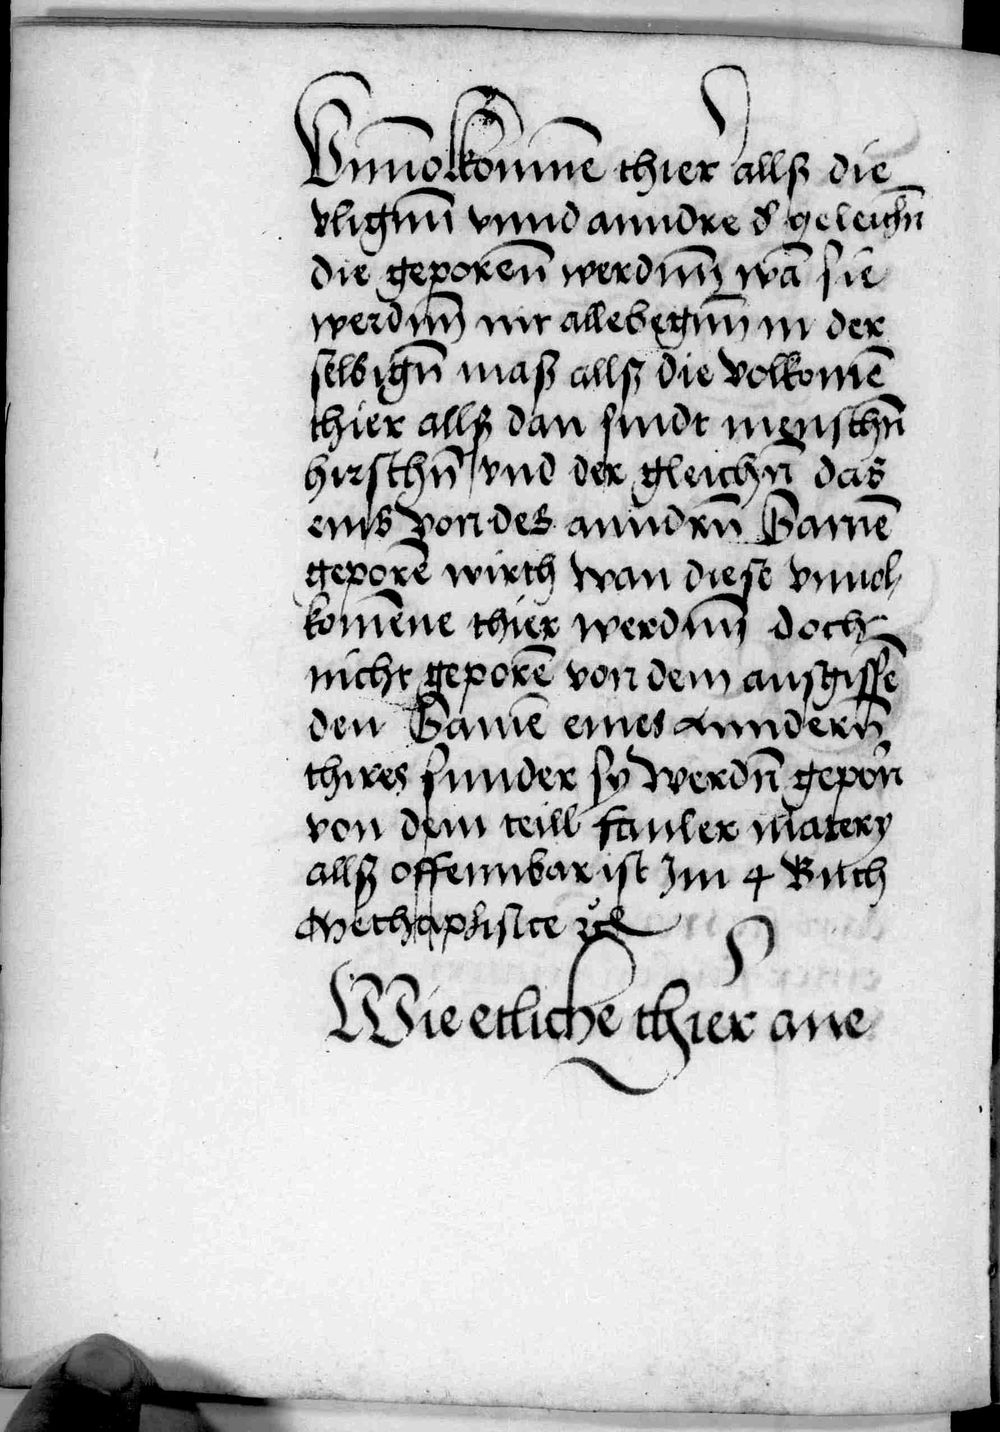 Vnuolkomme̅ thier allß die
vlignn̅ vnnd anndre d' geleichn̅
die geporen̅ werdnn̅ wa̅ sie
werdnn̅ nit allebegnn̅ in der
selbign̅ maß allß die volkome̅
thier allß dan sindt menschn̅
hirschn̅ vnd der gleichn̅ das
eins von des anndrn̅ Same̅
gepore̅ wirth wan diese vnuol¬
kome̅ne thier werdnn̅ doch
nicht gepore̅ von dem ausgisse̅
den Same̅ eines anndern̅
thires sunder sy werdn̅ gepon̅
von dem teill fauler matery
allß offennbar ist Im 4 Buch
Methaphisice
Wie etliche thier ane